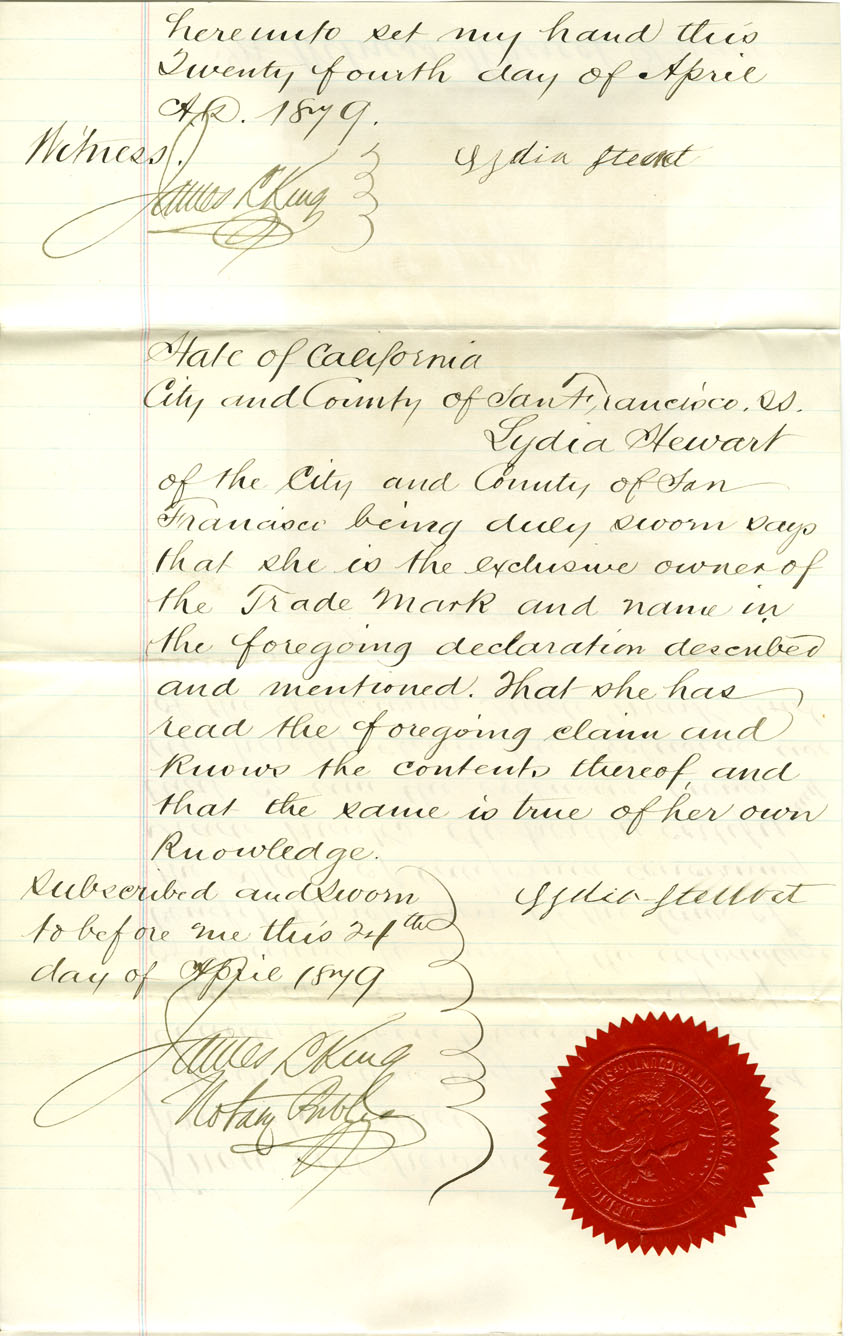 hereunto set my hand this
Twenty fourth day of April
A.D. 1879.
Witness. Lydia Stewart
James L King
State of California
City and County of San Francisco. ss.
Lydia Stewart
of the City and County of San
Francisco being duly sworn says
that she is the exclusive owner of
the Trade Mark and name in
the foregoing declaration described
and mentioned. That she has
read the foregoing claim and
knows the contents thereof, and
that the same is true of her own
knowledge.
Subscribed and sworn
to before me this 24th
day of April 1879
Lydia Stewart
James L King
Notary Public